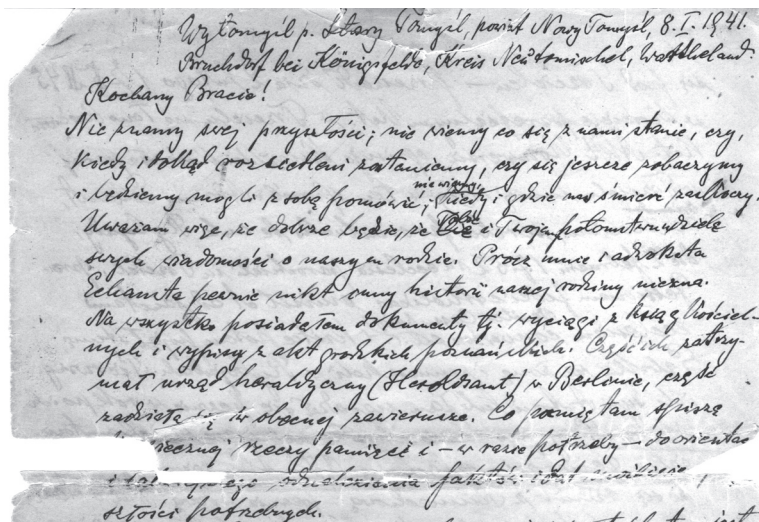 Wytomyśl p. Stary Tomyśl, powiat Nowy Tomyśl, 8. I. 1941.
Bruchdorf bei Königsfelde, Kreis Neutomischel, Wartheland.
Kochany Bracie!
Nie znamy swej przyszłości; nie wiemy co się z nami stanie, czy,
kiedy i dokąd rozsiedleni zostaniemy, czy się jeszcze zobaczymy
i będziemy mogli z sobą pomówić; nie wiemy kiedy i gdzie nas śmierć zaskoczy.
Uważam więc, że dobrze będzie, że Tobie i Twojemu potomstwu udzielę
swych wiadomości o naszym rodzie. Prócz mnie i adwokata
Echausta pewnie nikt inny historii naszej rodziny nie zna.
Na wszystko posiadałem dokumenty tj. wyciągi z ksiąg kościel-
nych i wypisy z akt grodzkich poznańskich. Część ich zatrzy-
mał urząd heraldyczny (Heroldsamt) w Berlinie, część
zadziała się w obecnej zawierusze. Co pamiętam spiszę
wiecznej rzeczy pamięci i – w razie potrzeby – do orientac
i odnalezienia faktów i dat
szłości potrzebnych.